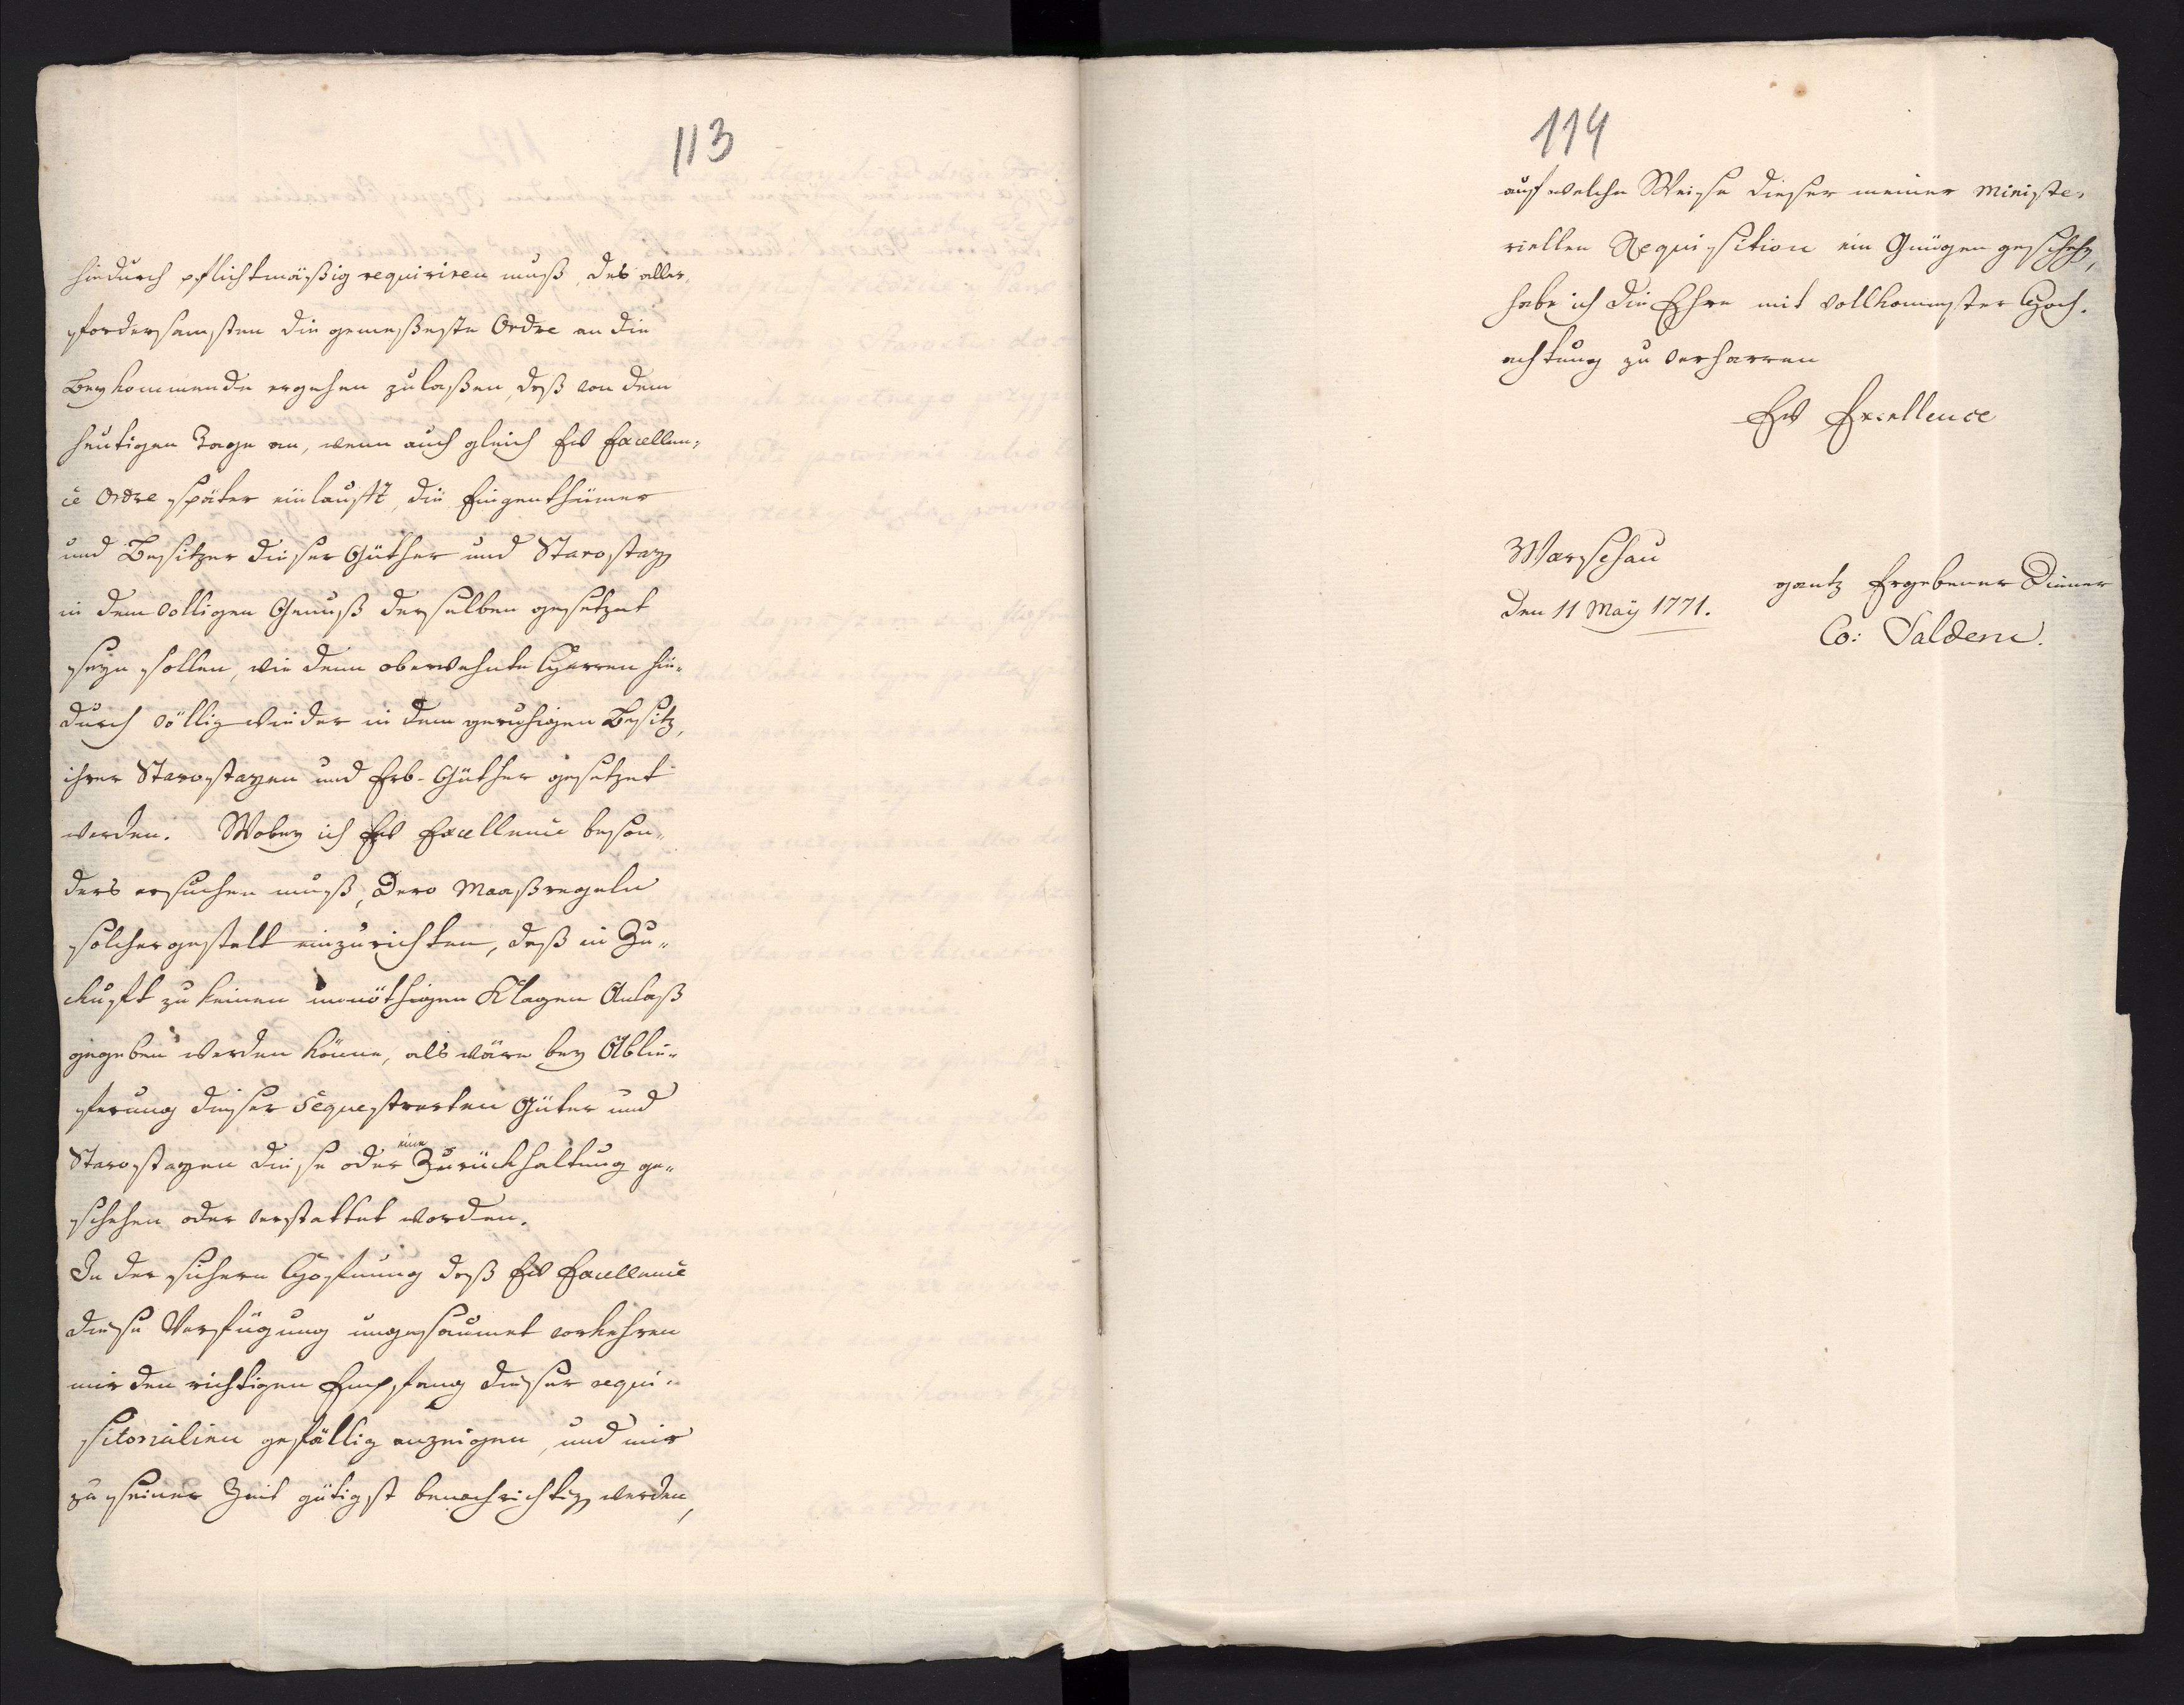 113
hiedurch pflichtmäßig requiriren muß, des aller-
fordersamsten die gemeßenste Ordre an die
Beykommende ergehen zu laßen, daß von dem
heutigen Tage an, wenn auch gleich Ew Excellen-
ce Ordre später einlaufft, die Eingenthümer
und Besitzer dieser Güther und Starostey
in dem völligen Genuß derselben gesetzet
seyn sollen, wie denn oberwehnte Herren hie-
durch völlig wieder in dem geruhigen Besitz,
ihrer Starosteyen und Erb-Güther gesetzet
werden. Wobey ich Ew Excellence beson-
ders ersuchen muß, Dero Maaßregeln
solchergestalt einzurichten, daß in Zu-
kunft zu keinen unnöthigen Klagen Anlaß
gegeben werden könne, als wäre bey Ablie-
ferung dieser Sequestrerten Güter und
Starosteyen diese oder eine Zurückhaltung ge-
schehen oder verstattet worden.
In der sichern Hofnung daß Ew Excellence
diese Verfügung ungesäumet vorkehren
mir den richtigen Empfang dieser requi-
sitorialien gefällig anzeigen, und mir
zu seiner Zeit gütigst benachrichtig werden,
114
auf welche Weise dieser meiner Ministe-
riellen Requisition ein Gnügen geschehe,
habe ich die Ehre mit vollkommster Hoch-
achtung zu verharren
Ew Excellence
Warschau
den 11 May 1771.
gantz Ergebener Diener
Co: Saldern.